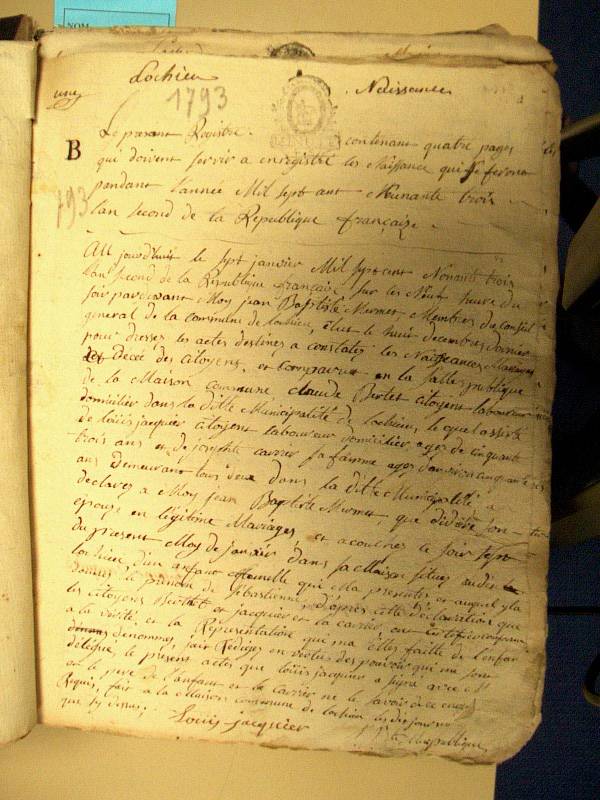 NOM
Lochieu
Naissance
une
1793
B
Le present Registre contenant quatre pages
qui doivent servir a enregistré les Naissance qui se feront
pendant l'année Mil sept cent Nonante trois
793
l'an second de la Republique française.
Au jourd'huit le sept janvier Mil sept cent Nonante trois
l'an second de la Republique française sur les Neuf heure du
soir pardevant Moy jean Baptiste Mermet Membres du conseil
general de la commune de lochieu, élue le huit decembres dernier
pour dresser les actes destines a constater les Naissances Mariages
et Decée des citoyens, et comparut en la salle publique
de la Maison commune claude Bertet citoyens laboureur
domicilier dans la ditte Municipalité de lochieu, le quel assisté
de loüis jacquier citoyens laboureur domicilier, agez de cinquante
trois ans et de josephte carrier sa famme agez d'environ cinquante
ans Demeurant tous deux dans la ditte Municipalité a
declarez a Moy jean Baptiste Mermet que son
epouse en légitime Mariages, et acouchez le soir sept
du present Moy de janvier dans sa Maison situez audit
lochieu, d'un enfant femelle qui Ma presentez et auquel y la
donnez le prenom de sebastienne, d'après cette declaration que
les citoyens Berthet et jacquier et la carrier, ont
a la verité, et la Representation qui ma etes faitte de l'enfant
denommez, jait Rediges en vertus des pouvoir qui me sont
délegué, le present actes que loüis jacquier a signe avec M
et le pere de l'enfant et la carrier ne le savoir de ce enquis
Requis, fait a la Maison commune de lochieu les dit jour
que sy dessus.
Loüis jacquier
Republique